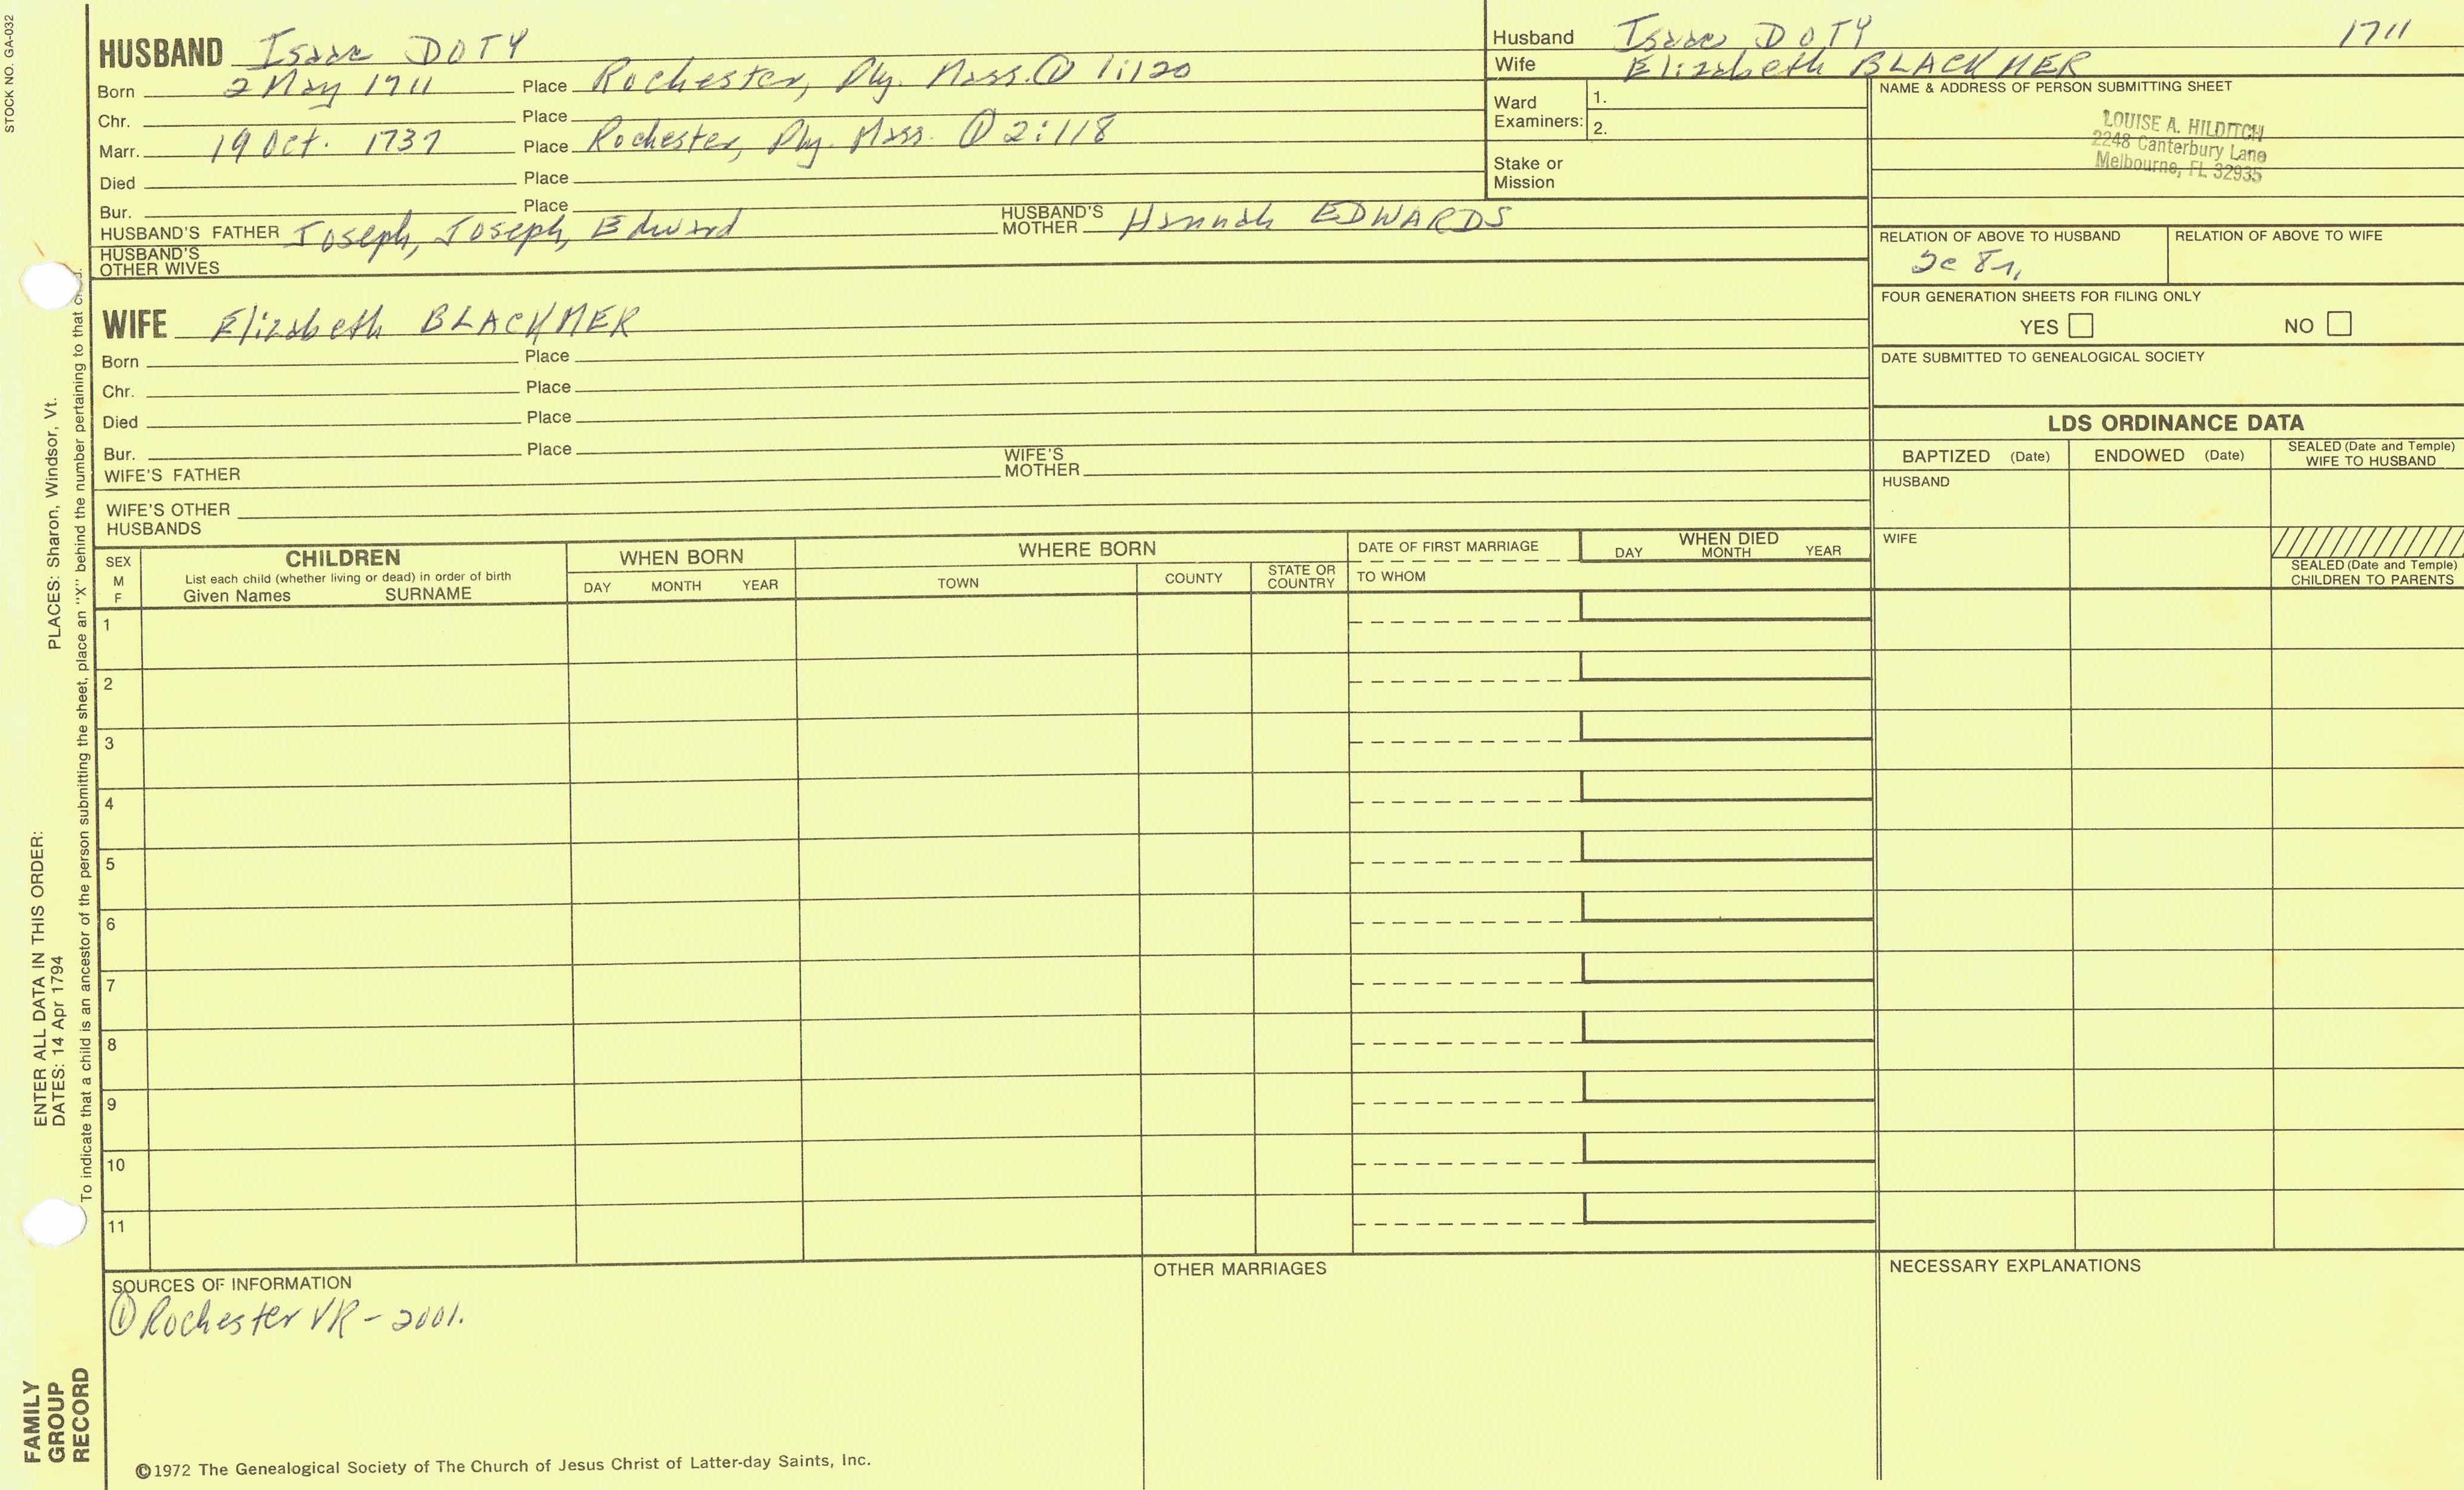 STOCK NO. GA-032
HUSBAND Isaac DOTY
Born 2 May 1711 Place Rochester, Ply. Mass. ① 1:120
Chr. Place
Marr. 19 Oct. 1737 Place Rochester, Ply. Mass. ① 2:118
Died Place
Bur. Place
HUSBAND'S FATHER Joseph, Joseph, Edward HUSBAND'S MOTHER Hannah EDWARDS
HUSBAND'S OTHER WIVES
Husband Isaac DOTY 1711
Wife Elizabeth BLACKMER
Ward Examiners: 1.
2.
Stake or Mission
NAME & ADDRESS OF PERSON SUBMITTING SHEET
LOUISE A. HILDITCH
2248 Canterbury Lane
Melbourne, FL 32935
RELATION OF ABOVE TO HUSBAND RELATION OF ABOVE TO WIFE
FOUR GENERATION SHEETS FOR FILING ONLY
YES NO
DATE SUBMITTED TO GENEALOGICAL SOCIETY
WIFE Elizabeth BLACKMER
Born Place
Chr. Place
Died Place
Bur. Place
WIFE'S FATHER WIFE'S MOTHER
WIFE'S OTHER HUSBANDS
LDS ORDINANCE DATA
BAPTIZED (Date) ENDOWED (Date) SEALED (Date and Temple) WIFE TO HUSBAND
HUSBAND
WIFE
SEALED (Date and Temple) CHILDREN TO PARENTS
SEX M F
CHILDREN
List each child (whether living or dead) in order of birth
Given Names SURNAME
WHEN BORN
DAY MONTH YEAR
WHERE BORN
TOWN COUNTY STATE OR COUNTRY
DATE OF FIRST MARRIAGE
TO WHOM
WHEN DIED
DAY MONTH YEAR
1
2
3
4
5
6
7
8
9
10
11
SOURCES OF INFORMATION
① Rochester VR - 2001.
OTHER MARRIAGES
NECESSARY EXPLANATIONS
©1972 The Genealogical Society of The Church of Jesus Christ of Latter-day Saints, Inc.
FAMILY
GROUP
RECORD
ENTER ALL DATA IN THIS ORDER:
DATES: 14 Apr 1794 PLACES: Sharon, Windsor, Vt.
To indicate that a child is an ancestor of the person submitting the sheet, place an "X" behind the number pertaining to that